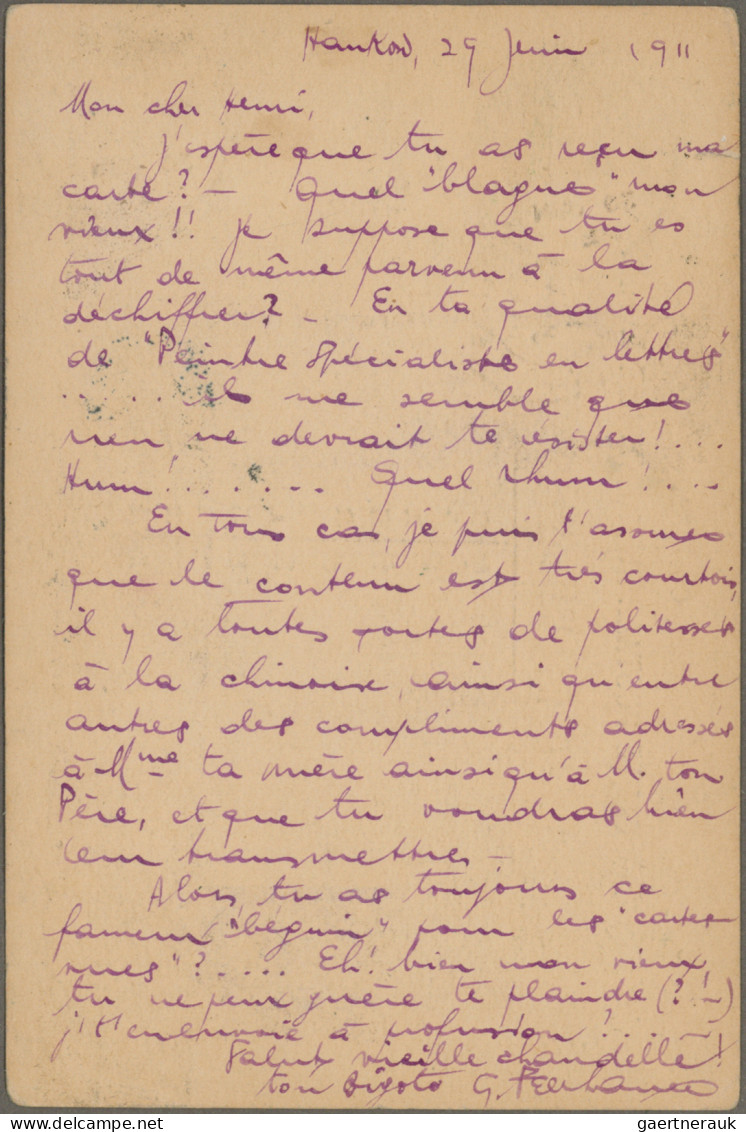 Hankow, 29 Juin 1911
Mon cher Henri,
J'espère que tu as reçu ma
carte? — Quel "blague" mon
vieux!! je suppose que tu es
tout de même parvenu à la
déchiffrer? — En ta qualité
de "Peintre spécialiste en lettres"
.... il me semble que
rien ne devrait te résister!...
Hum!...... Quel rhum!....
En tous cas, je puis t'assurer
que le contenu est très courtois,
il y a toutes sortes de politesses
à la chinoise, ainsi qu'entre
autres des compliments adressés
à Mme ta mère ainsi qu'à M. ton
Père, et que tu voudras bien
leur transmettre —
Alors, tu as toujours ce
fameux "béguin" pour les "cartes
vues"?.... Eh! bien mon vieux,
tu ne peux guère te plaindre (?!—)
j't'en envoie à profusion!...
Salut vieille chandelle!
ton G.
gaertnerauk @ www.delcampe.net